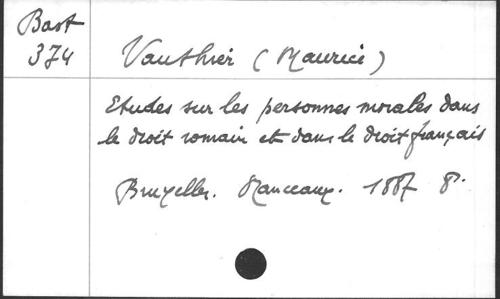 Bast
374
Vauthier (Maurice)
Etudes sur les personnes morales dans
le droit romain et dans le droit français
Bruxelles. Manceaux. 1887 8°.